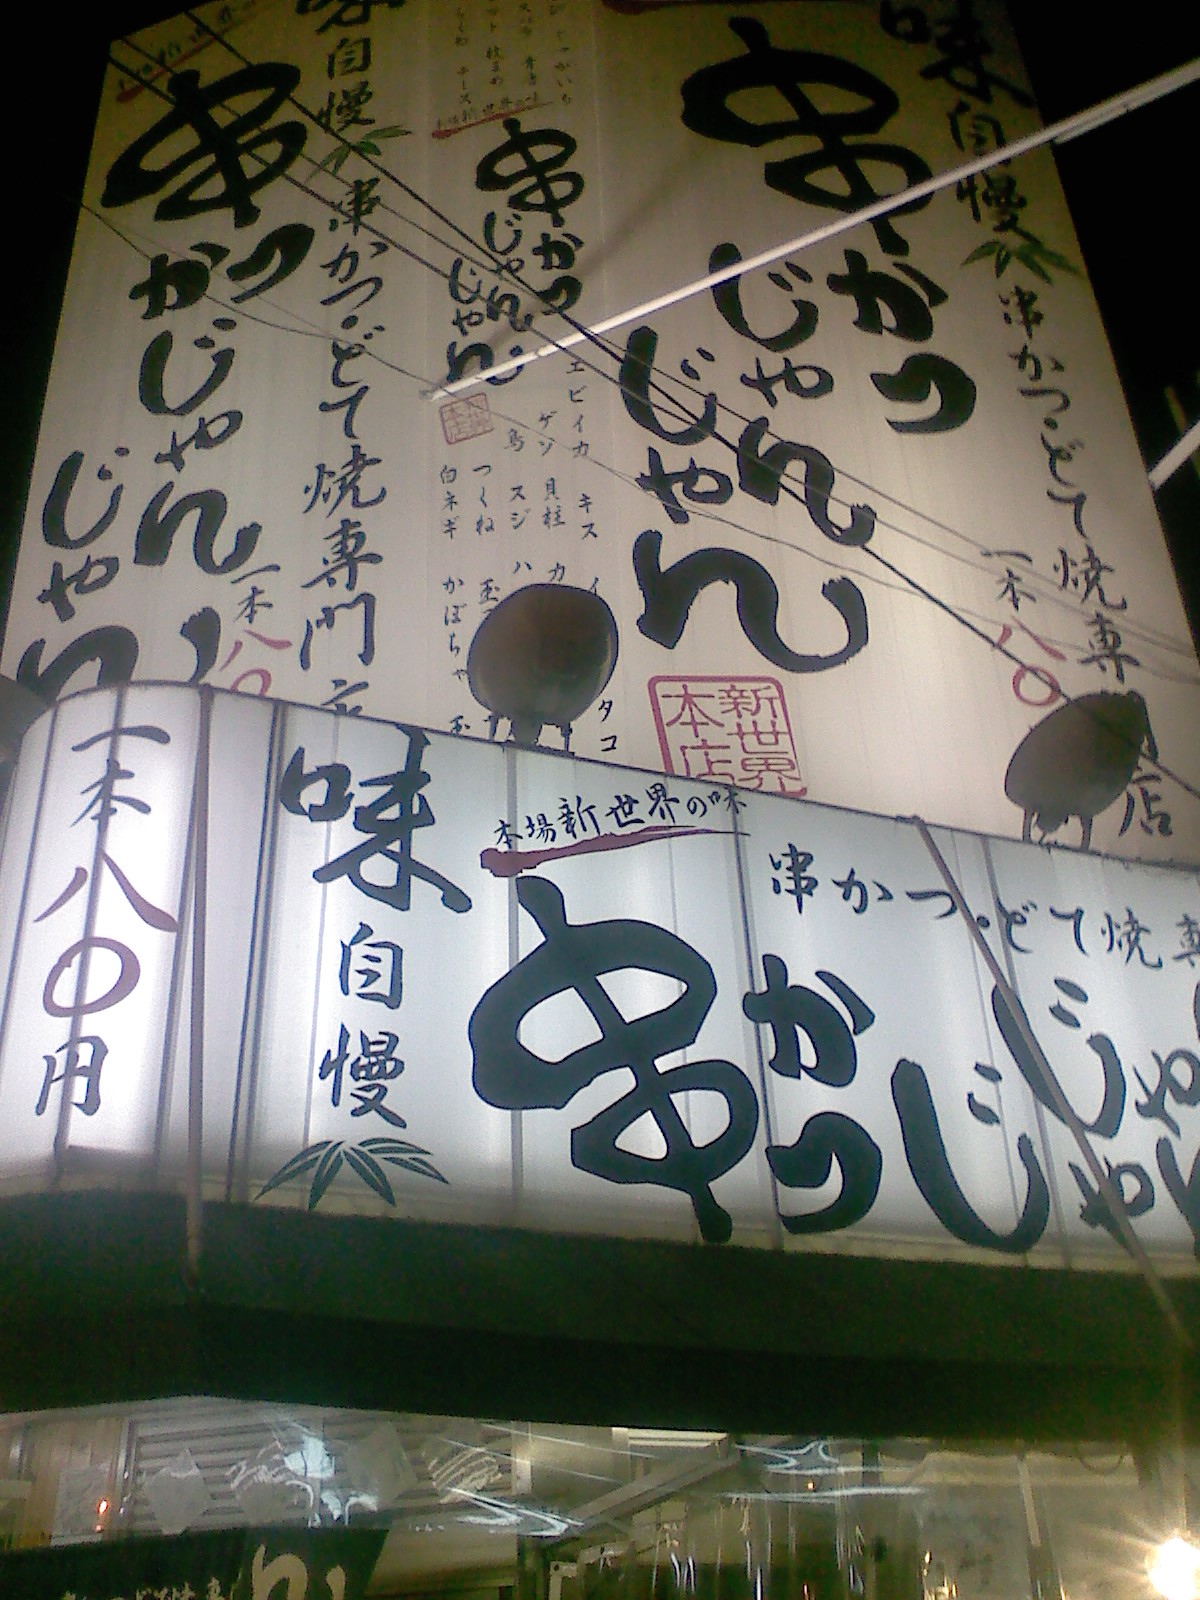 味自慢
串かつ・どて焼専門店
一本八〇
串かつ
じゃん
じゃん
新世界
本店
じゃがいも
チーズ
串かつ
じゃん
じゃん
エビ イカ キス
タコ
ゲソ 貝柱
鳥 スジ
つくね
白ネギ かぼちゃ
味自慢
串かつ・どて焼専門店
一本八〇
串かつ
じゃん
じゃん
一本八〇円
味自慢
本場新世界の味
串かつ・どて焼専
串かつ
じゃ
じゃん